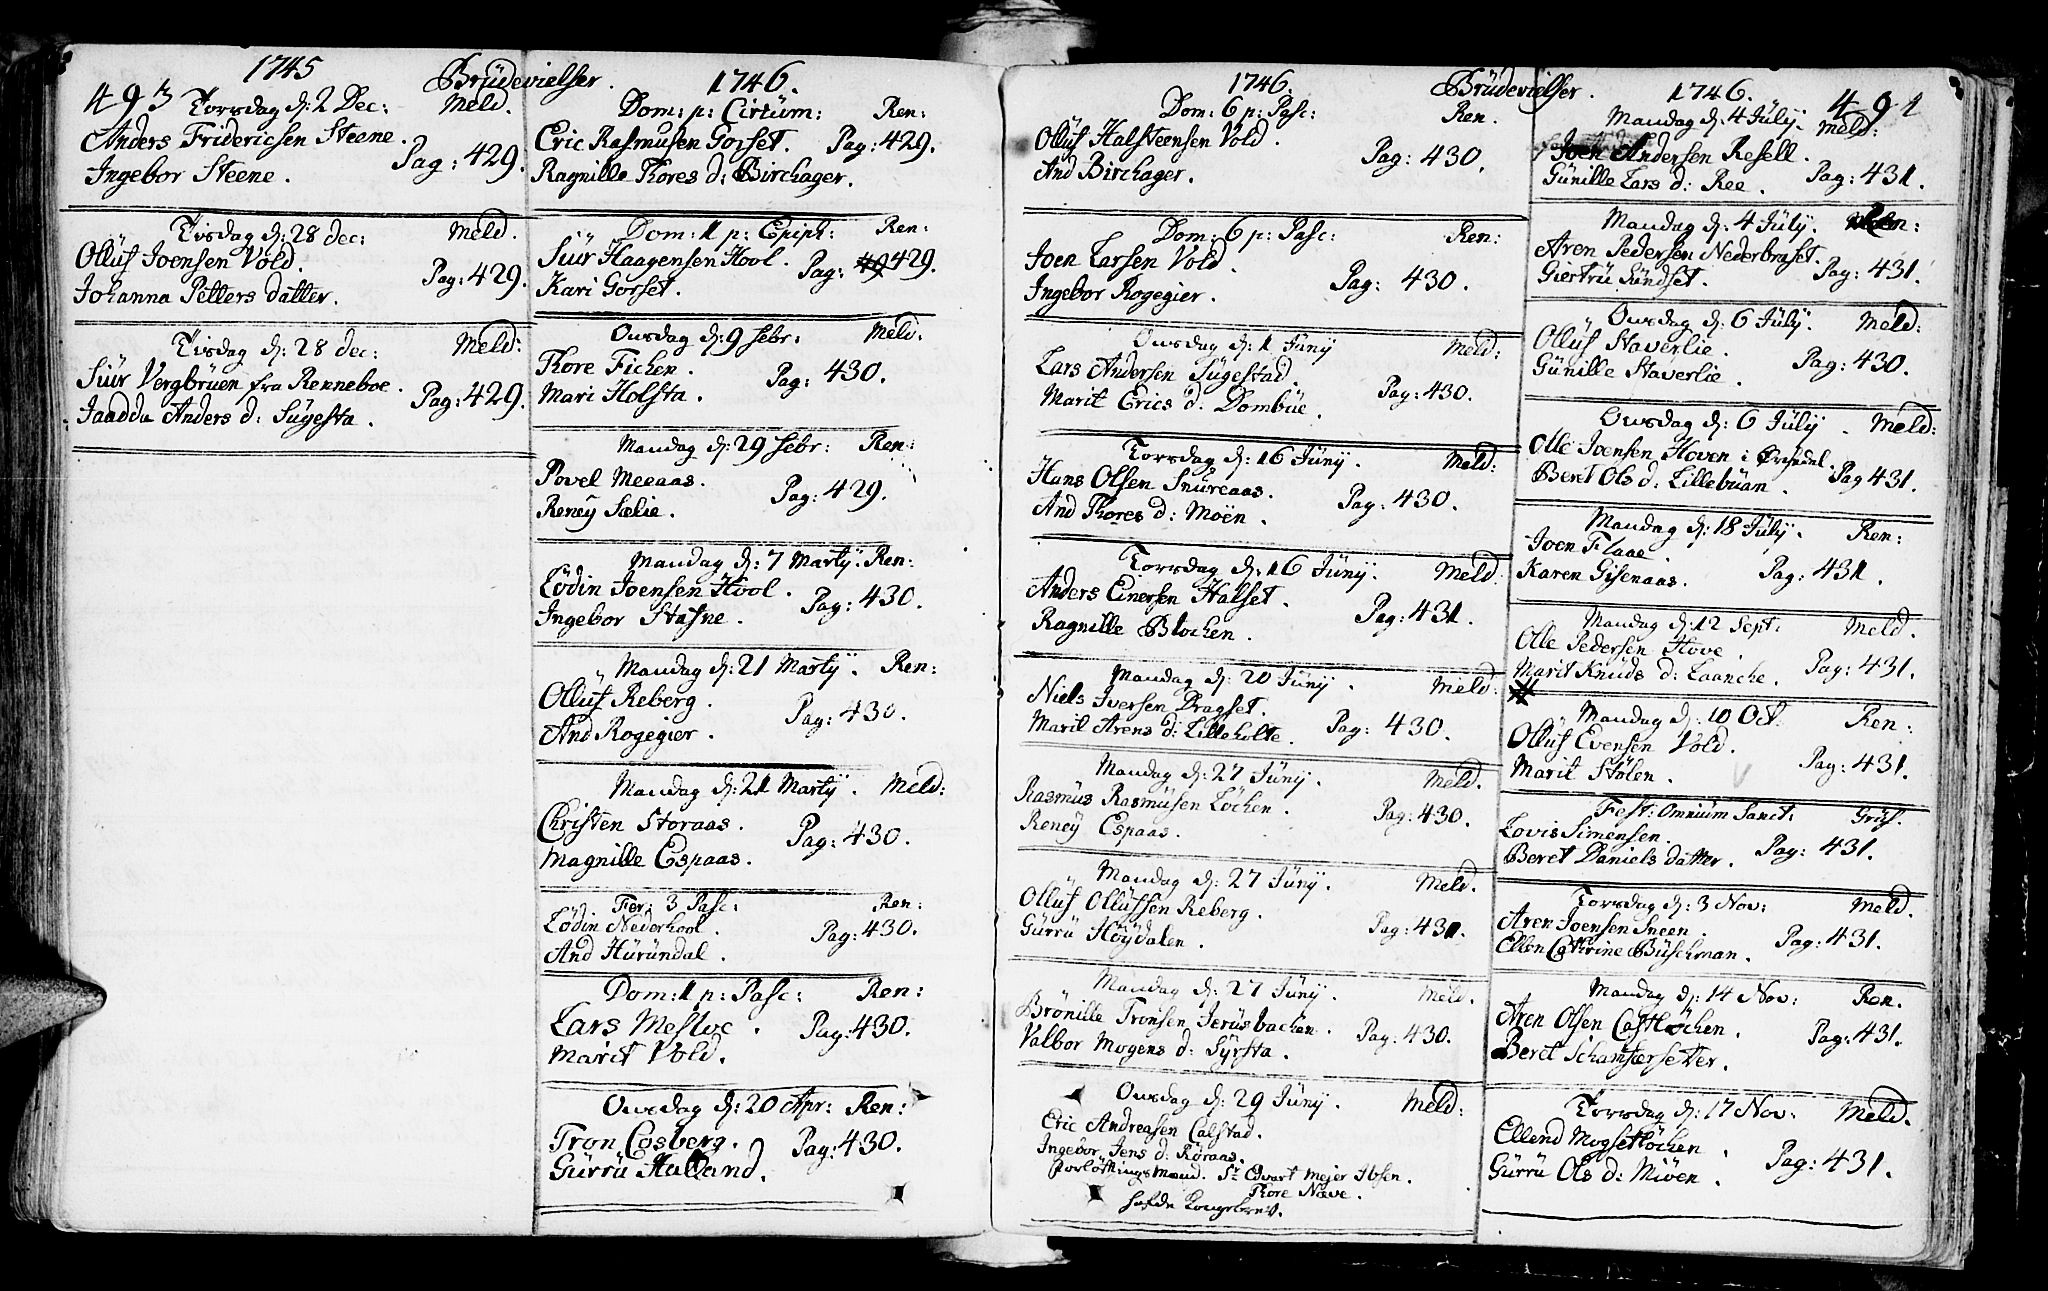 493
1745
Brüdevielser.
Torsdag d: 2 Dec: Meld.
Anders Friderichsen Steene.
Ingebor Steene. Pag: 429.
Tisdag d: 28 dec: Meld.
Ollüf Joensen Vold.
Johanna Petters datter. Pag: 429.
Tisdag d: 28 dec: Meld:
Siür Vergbrüen fra Renneboe.
Jaadda Anders d: Sügesta. Pag: 429.
1746.
Dom: p: Cirküm: Ren:
Eric Rasmusen Gorset. Pag: 429.
Ragnille Thores d: Birchager.
Dom: 1 p: Epiph: Ren:
Siür Haagensen Hool. Pag: 429.
Kari Gorset.
Onsdag d: 9 febr: Meld:
Thore Fichen.
Mari Holsta. Pag: 430.
Mandag d: 29 febr: Ren:
Povel Meeaas.
Reneÿ Sælie. Pag: 429.
Mandag d: 7 Martÿ. Ren:
Lödin Joensen Hool.
Ingebor Stafne. Pag: 430.
Mandag d: 21 Martÿ. Ren:
Ollüf Reberg.
And Rogegier. Pag: 430.
Mandag d: 21 Martÿ. Meld:
Christen Storaas.
Magnille Espaas. Pag: 430.
Fer: 3 Pasc: Ren:
Lödin Nederhool.
And Hüründal. Pag: 430.
Dom: 1 p: Pasc: Ren:
Lars Mesloe.
Marit Vold. Pag: 430.
Onsdag d: 20 Apr: Ren:
Tron Cosberg.
Gürrü Halland. Pag: 430.
1746.
Brüdevielser.
Dom: 6 p: Pasc: Ren.
Ollüf Halsteensen Vold.
And Birchager. Pag: 430.
Dom: 6 p: Pasc: Ren:
Joen Larsen Vold.
Ingebor Rogegier. Pag: 430.
Onsdag d: 1 Jünÿ Meld:
Lars Andersen Sügestad.
Marit Erics d: Dombüe. Pag: 430.
Torsdag d: 16 Jünÿ. Meld:
Hans Olsen Snüreaas.
And Thores d: Moën. Pag: 430.
Torsdag d: 16 Jünÿ. Meld:
Anders Einersen Halset.
Ragnille Blochen. Pag: 431.
Mandag d: 20 Jünÿ. Meld:
Niels Iversen Dragset.
Marit Arens d: Lilleholte. Pag: 430.
Mandag d: 27 Jünÿ. Meld.
Rasmüs Rasmüsen Löchen.
Reneÿ Espaas. Pag: 430.
Mandag d: 27 Jünÿ. Meld.
Ollüf Ollüfsen Reberg.
Gürrü Höÿdalen. Pag: 431.
Mandag d: 27 Jünÿ. Meld.
Brönille Tronsen Jerüsbachen.
Valbor Mogens d: Sÿrsta. Pag: 430.
Onsdag d: 29 Jünÿ. Meld:
Eric Andreasen Calstad.
Ingebor Jens d: Röraas.
Forlöfningsmænd. Sr Edvart Mejer Ibsen.
Thore Næve.
hafde Kongebrev.
1746.
491
Mandag d: 4 Jülÿ. Meld:
Joen Andersen Resell.
Günille Lars d: Ree. Pag: 431.
Mandag d: 4 Jülÿ. Ren:
Aren Pedersen Nederbraset.
Giertrü Sündset. Pag: 431.
Onsdag d: 6 Jülÿ. Meld:
Ollüf Staverlie.
Günille Staverlie. Pag: 430.
Onsdag d: 6 Jülÿ. Meld:
Olle Joensen Hoven i Ørchedal.
Beret Ols d: Lillebüan. Pag 431.
Mandag d: 18 Jülÿ. Ren:
Joen Flaae.
Karen Gisenaas. Pag: 431.
Mandag d: 12 Sept: Meld.
Olle Pedersen Hove.
Marit Knüds d: Laanche. Pag: 431.
Mandag d: 10 Oct. Ren:
Ollüf Evensen Vold.
Marit Stölen. Pag: 431.
Fest: Omniüm Sanct: Grüf.
Lovis Simensen.
Beret Daniels datter. Pag: 431.
Torsdag d: 3 Nov: Meld.
Aren Joensen Sneen.
Ellen Cathrine Büschman. Pag: 431.
Mandag d: 14 Nov: Ren.
Aren Olsen Castlöchen.
Beret Schamfærsetter. Pag: 431.
Torsdag d: 17 Nov: Meld.
Ellend Mogsetlöchen.
Gürrü Ols d: Miöen. Pag: 431.